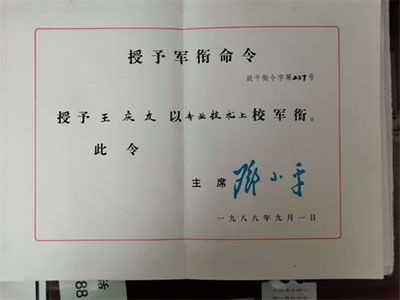 授予军衔命令
政干衔令字第207号
授予王庆友以专业技术上校军衔。
此令
主席 邓小平
一九八八年九月一日
88